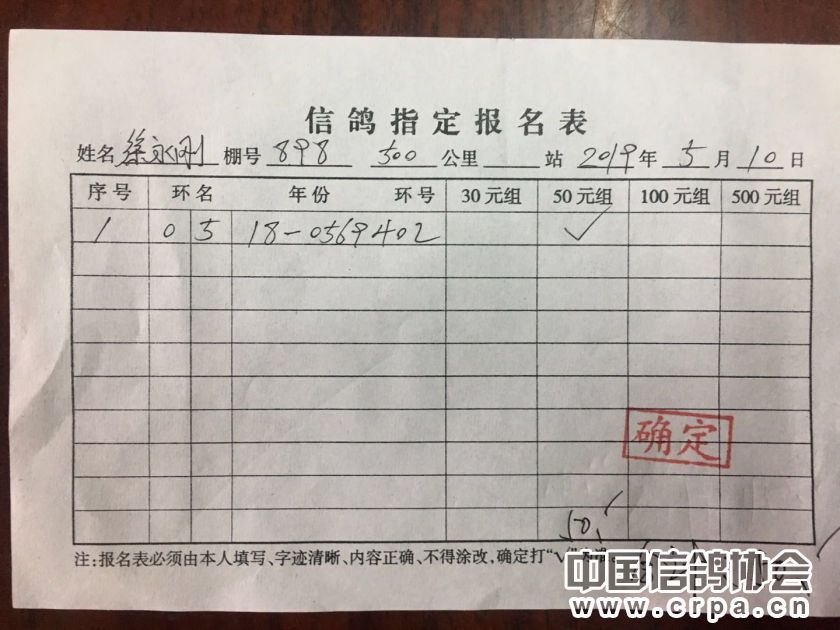 信鸽指定报名表
姓名 徐永刚 棚号 898 500 公里 站 2019 年 5 月 10 日
序号 环名 年份 环号 30元组 50元组 100元组 500元组
1 0 5 18-0569402 √
确定
50,
注:报名表必须由本人填写、字迹清晰、内容正确、不得涂改,确定打“√”
中国信鸽协会
www.crpa.cn